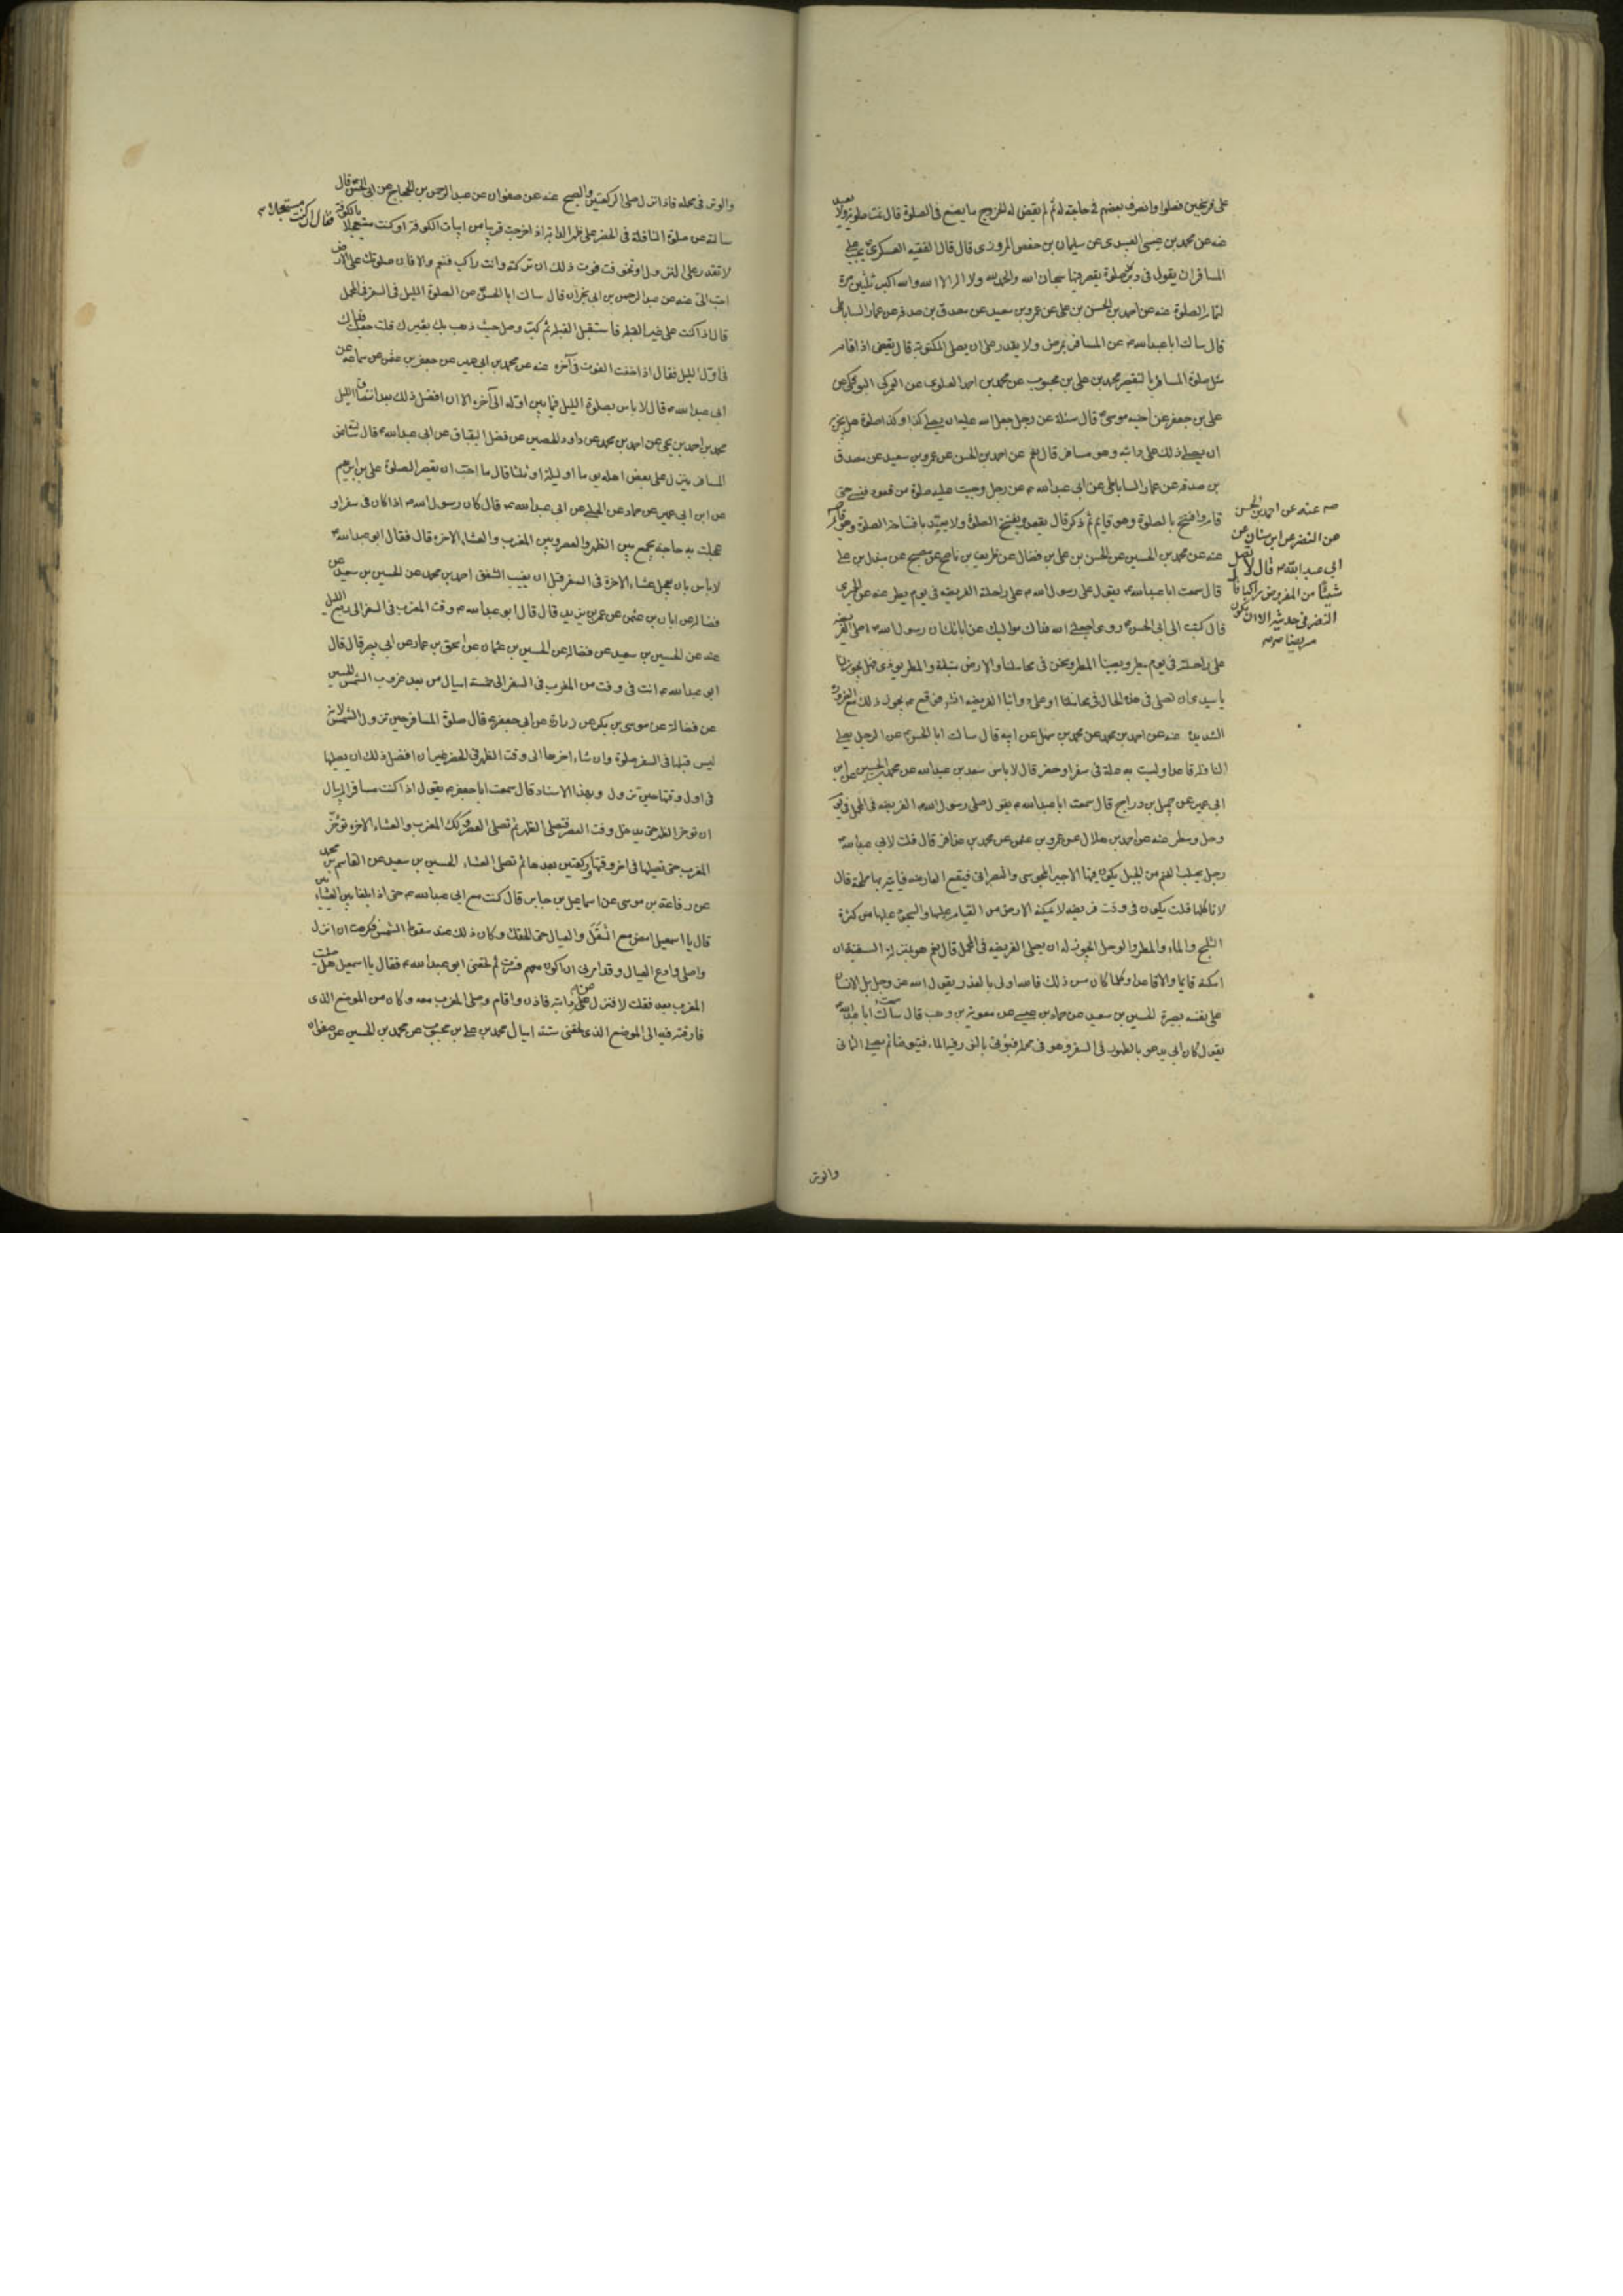 على فرسخين فصلوا وانصرف بعضهم فى حاجة له ثم لم يقض له الخروج ما يصنع فى الصلوة قال تمت صلوته ولا يعيد
عنه عن محمد بن عيسى العبيدى عن سليمان بن حفص المروزى قال قال الفقيه العسكرى يجب على
المسافر ان يقول فى دبر كل صلوة يقصر فيها سبحان الله والحمد لله ولا اله الا الله والله اكبر ثلثين مرة
لتمام الصلوة عنه عن احمد بن الحسن بن على عن عمرو بن سعيد عن مصدق بن صدقه عن عمار الساباطى
قال سالت ابا عبد الله ع عن المسافر يمرض ولا يقدر على ان يصلى المكتوبة قال يقضى اذا اقام
مثل صلوة المسافر بالتقصير محمد بن على بن محبوب عن محمد بن احمد العلوى عن العمركى البوفكى عن
على بن جعفر عن اخيه موسى قال سئلته عن رجل جعل الله عليه ان يصلى كذا وكذا صلوة هل يجزيه
ان يصلى ذلك على دابته وهو مسافر قال نعم عن احمد بن الحسن عن عمرو بن سعيد عن مصدق
بن صدقه عن عمار الساباطى عن ابى عبد الله ع عن رجل وجبت عليه صلوة من قعود فنسى حتى
قام وافتتح الصلوة وهو قايم ثم ذكر قال يقعد ويفتتح الصلوة ولا يعتد بافتتاحه الصلوة وهو قائم
صه عنه عن احمد بن الحسن
عن النضر عن ابن سنان عن
ابى عبد الله ع قال لا تصل
شيئا من المفروض راكبا قال
النضر فى حديثه الا ان يكون
مريضا صه
عنه عن محمد بن الحسين عن الحسن بن على بن فضال عن ظريف بن ناصح عن مصبح عن مندل بن على
قال سمعت ابا عبد الله ع يقول صلى رسول الله ص على راحلته الفريضه فى يوم مطر عنه عن الحميرى
قال كتبت الى ابى الحسن ع روى جعلنى الله فداك مواليك عن ابائك ان رسول الله ص صلى الفريضه
على راحلته فى يوم مطر ويصيبنا المطر ونحن فى محاملنا والارض مبتلة والمطر يوذى فهل يجوز لنا
يا سيدى ان نصلى فى هذه الحال فى محاملنا او على دوابنا الفريضه انشاء الله فوقع ع يجوز ذلك مع الضرورة
الشديدة عنه عن احمد بن محمد عن محمد بن سهل عن ابيه قال سالت ابا الحسن ع عن الرجل يصلى
النافله قاعدا وليست به علة فى سفر او حضر قال لا باس سعد بن عبد الله عن محمد بن الحسين عن ابن
ابى عمير عن جميل بن دراج قال سمعت ابا عبد الله ع يقول صلى رسول الله ص الفريضه فى المحمل فى يوم
وحل ومطر عنه عن احمد بن هلال عن عمرو بن عثمن عن محمد بن عذافر قال قلت لابى عبد الله ع
رجل يجلب الغنم من الجبل يكون فيها الاجير المجوسى والنصرانى فيقع العارضه فياتيه بها مملحة قال
لا تاكلها قلت يكون فى وقت فريضه لا يمكنه الارض من القيام عليها والسجود عليها من كثرة
الثلج والماء والمطر والوحل ايجوز له ان يصلى الفريضه فى المحمل قال نعم هو بمنزلة السفينة ان
امكنه قايما والا قاعدا وكلما كان من ذلك فالله اولى بالعذر يقول الله عز وجل بل الانسان
على نفسه بصيرة الحسين بن سعيد عن حماد بن عيسى عن معوية بن وهب قال سمعت ابا عبد الله ع
يقول كان ابى يدعو بالطهور فى السفر وهو فى محمله فيؤتى بالتور فيه الماء فيتوضا ثم يصلى الثمانى
والوتر
والوتر فى محمله فاذا نزل صلى الركعتين والصبح عنه عن صفوان عن عبد الرحمن بن الحجاج عن ابى الحسن قال
سالته عن صلوة النافلة فى الحضر على ظهر الدابه اذا خرجت قريبا من ابيات الكوفة او كنت مستعجلا بالكوفة
فقال ان كنت مستعجلا صه
لا تقدر على النزول وتخوفت فوت ذلك ان تركته وانت راكب فنعم والا فان صلوتك على الارض
احب الىّ عنه عن عبد الرحمن بن ابى نجران قال سالت ابا الحسن ع عن الصلوة الليل فى السفر فى المحمل
قال اذا كنت على غير القبله فاستقبل القبله ثم كبر وصل حيث ذهب بك بعيرك قلت جعلت فداك
فى اول الليل فقال اذا خفت الفوت فى آخره عنه عن محمد بن ابى عمير عن جعفر بن عثمن عن سماعه عن
ابى عبد الله ع قال لا باس بصلوة الليل فيما بين اوله الى آخره الا ان افضل ذلك بعد انتصاف الليل
محمد بن احمد بن يحيى عن احمد بن محمد عن داود بن الحصين عن فضل البقباق عن ابى عبد الله ع قال
المسافر ينزل على بعض اهله يوما او ليلة او ثلثا قال ما احب ان يقصر الصلوة على بن ابرهيم
عن ابن ابى عمير عن حماد عن الحلبى عن ابى عبد الله ع قال كان رسول الله ص اذا كان فى سفر او
عجلت به حاجة يجمع بين الظهر والعصر وبين المغرب والعشاء الاخره قال فقال ابو عبد الله ع
لا باس بان يعجل عشاء الاخرة فى السفر قبل ان يغيب الشفق احمد بن محمد عن الحسين بن سعيد عن
فضاله عن ابان بن عثمن عن عمر بن يزيد قال قال ابو عبد الله ع وقت المغرب فى السفر الى ربع الليل
عنه عن الحسين بن سعيد عن فضاله عن الحسين بن عثمان عن اسحق بن عمار عن ابى بصير قال قال
ابو عبد الله ع انت فى وقت من المغرب فى السفر الى خمسة اميال من بعد غروب الشمس الحسين
عن فضالة عن موسى بن بكر عن زرارة عن ابى جعفر ع قال صلوة المسافر حين تزول الشمس لانه
ليس قبلها فى السفر صلوة وان شاء اخرها الى وقت الظهر فى الحضر غير ان افضل ذلك ان يصليها
فى اول وقتها حين تزول وبهذا الاسناد قال سمعت ابا جعفر ع يقول اذا كنت مسافرا لم تبال
ان توخر الظهر حتى يدخل وقت العصر فتصلى الظهر ثم تصلى العصر وكذلك المغرب والعشاء الاخره توخّر
المغرب حتى تصليها فى اخر وقتها وركعتين بعدها ثم تصلى العشاء الحسين بن سعيد عن القاسم بن محمد
عن رفاعة بن موسى عن اسماعيل بن جابر قال كنت مع ابى عبد الله ع حتى اذا بلغنا بين العشائين
قال يا اسمعيل امض مع الثقل والعيال حتى الحقك وكان ذلك عند سقوط الشمس فكرهت ان انزل
واصلى وادع العيال وقد امرنى ان اكون معهم فسرت ثم لحقنى ابو عبد الله ع فقال يا اسمعيل هل صليت
المغرب بعد فقلت لا فنزل عن دابته فاذن واقام وصلى المغرب وصليت معه وكان من الموضع الذى
فارقته فيه الى الموضع الذى لحقنى ستة اميال محمد بن على بن محبوب عن محمد بن الحسين عن صفوان